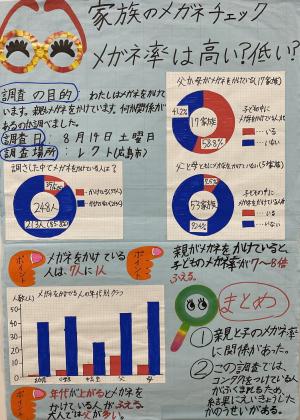 家族のメガネチェック
メガネ率は高い?低い?
調査の目的 わたしはメガネをかけて
います。親もメガネをかけています。何か関係が
あるのか調べました。
調査日: 8月19日 土曜日
調査場所: レクト(広島市)
調さした中でメガネをかけている人は?
248人
父か母がメガネをかけている(17家族)
41.2%
58.8%
子どもの中に
メガネをかけている人は
いる
いない
父と母ともにメガネをかけていない
子どもの中に
メガネをかけている人は
いる
いない
ポイント
メガネをかけている
人は7人に1人
ポイント
親がメガネをかけていると、
子どものメガネ率が7〜8倍
ふえる。
人数(人) メガネをかけてる人の年代別グラフ
50
40
30
20
10
0
小学生
中学生
父
母
ポイント
年代が上がるとメガネを
かけている人がふえる。
まとめ
①親と子のメガネ率
に関係があった。
②この調査では、
コンタクトをつけている人
がふくまれるため、
結果にえいきょうした
かのうせいがある。